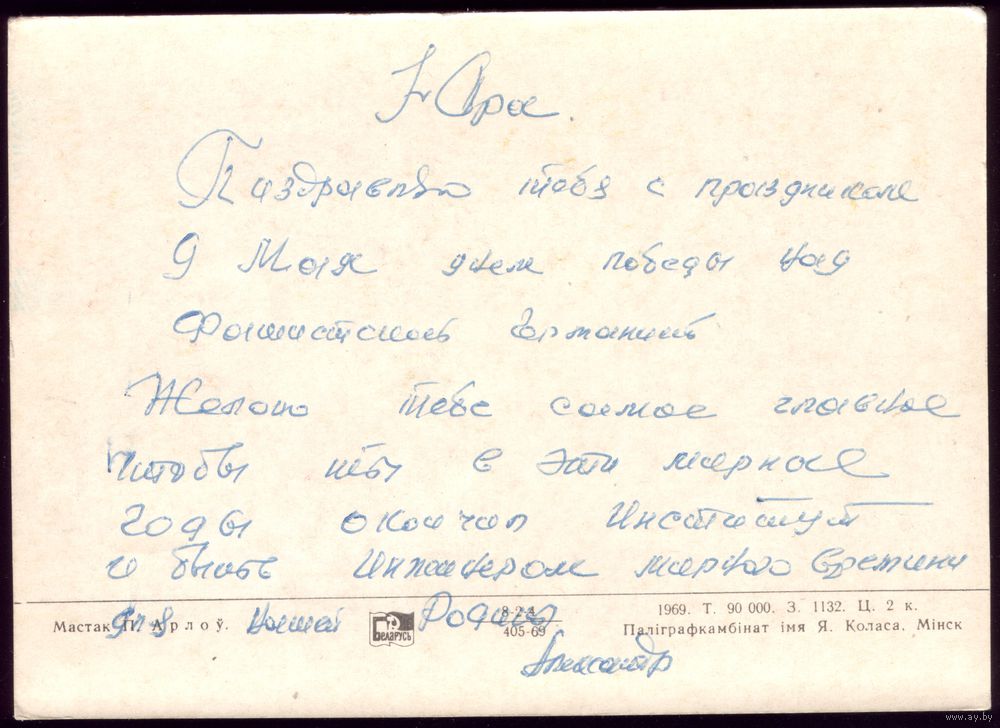 Юра.
Паздравляю тебя с праздником
9 Мая днем победы над
Фашистской Германией
Желаю тебе самое главное
чтобы ты в эти мирное
годы окончил Институт
и быть Инженером мирного времени
для нашей Родины
Александр
Мастак П. Арлоў.
Беларусь
8-2-4
405-69
1969. Т. 90 000. З. 1132. Ц. 2 к.
Паліграфкамбінат імя Я. Коласа. Мінск
www.ay.by